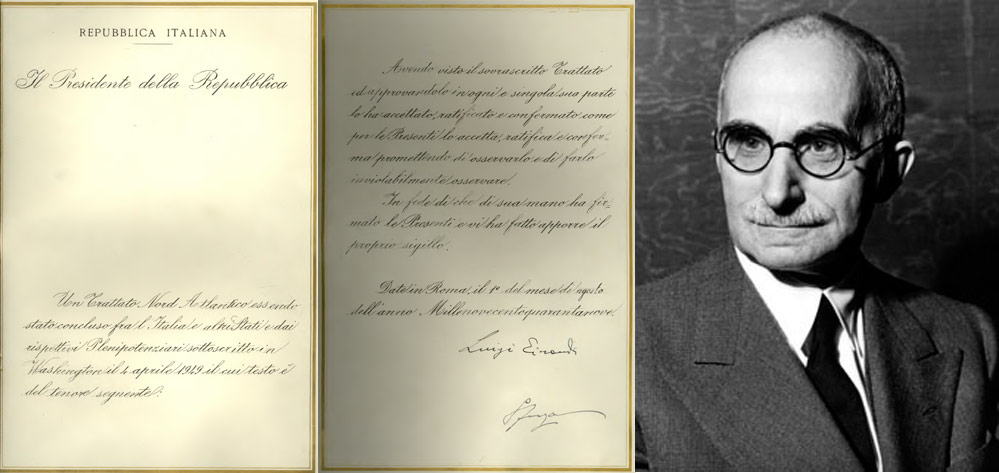 REPUBBLICA ITALIANA
Il Presidente della Repubblica
Un Trattato Nord Atlantico essendo
stato concluso fra l'Italia e altri Stati e dai
rispettivi Plenipotenziari sottoscritto in
Washington il 4 aprile 1949 il cui testo è
del tenore seguente:
Avendo visto il sovrascritto Trattato
ed approvandolo in ogni e singola sua parte
lo ha accettato, ratificato e confermato come
per le Presenti lo accetta, ratifica e confer-
ma promettendo di osservarlo e di farlo
inviolabilmente osservare.
In fede di che di sua mano ha fir-
mato le Presenti e vi ha fatto apporre il
proprio sigillo.
Date in Roma, il 1º del mese di agosto
dell'anno Millenovecentoquarantanove.
Luigi Einaudi
Sforza